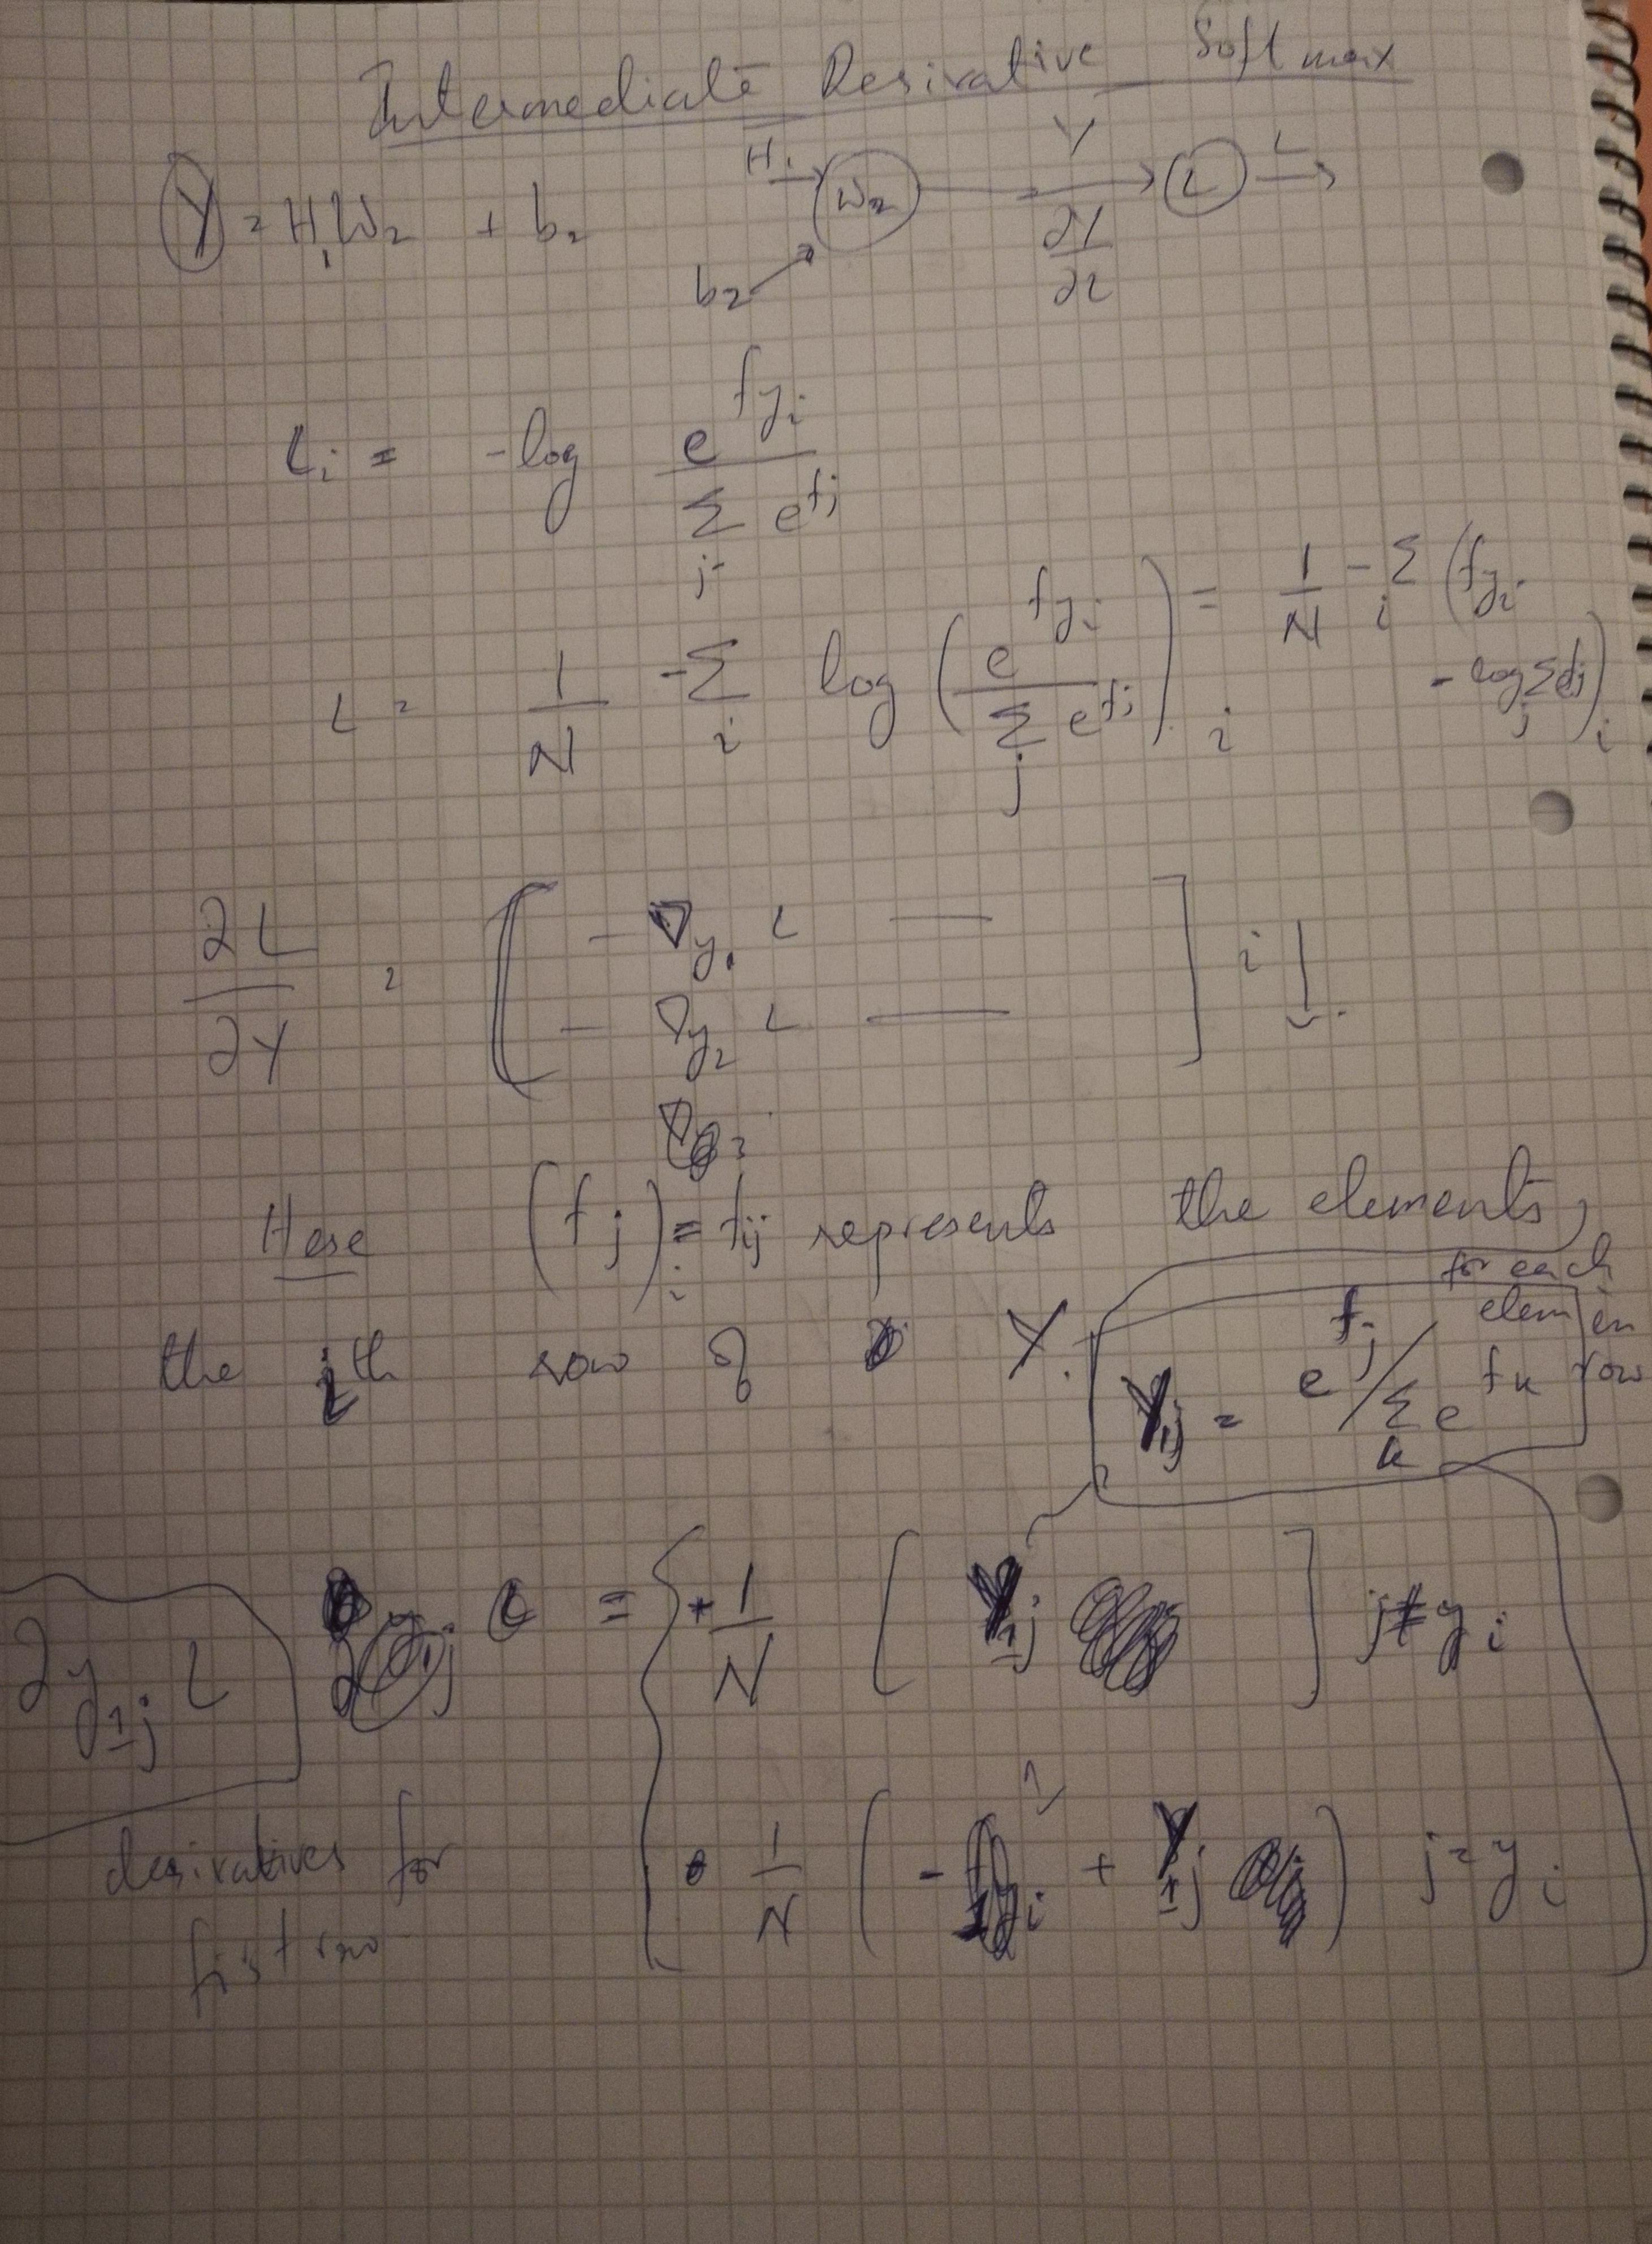 Intermediate Derivative Softmax
Y = H₁W₂ + b₂
H₁ → W₂ → Y → L → L
∂Y/∂L
b₂
Lᵢ = -log e^{f_{yᵢ}} / Σ_j e^{f_j}
L = 1/N -Σ_i log ( e^{f_{yᵢ}} / Σ_j e^{f_j} )_i = 1/N -Σ_i ( f_{yᵢ} - log Σ_j e^{f_j} )_i
∂L/∂Y = [ — ∇_{y₁} L —
— ∇_{y₂} L — ] i ↓
Here (f_j)_i = f_{ij} represents the elements,
the ith row of Y.
for each elem in row
Y_{ij} = e^{f_j} / Σ_k e^{f_k}
∂_{y_{1j}} L = { + 1/N [ Y_{1j} ] j ≠ yᵢ
1/N ( - 1 + Y_{1j} ) j = yᵢ
derivatives for
first row